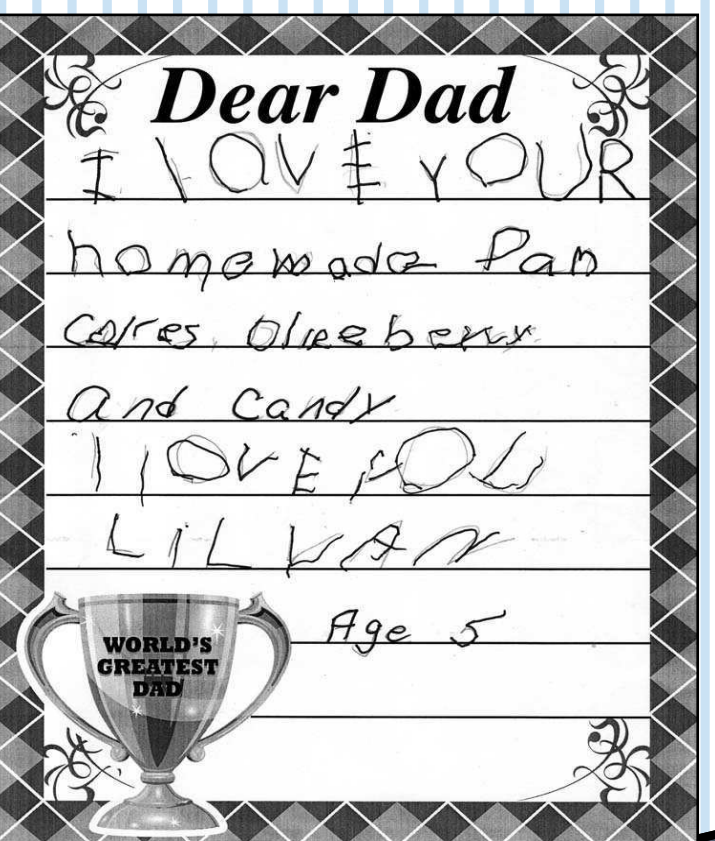 Dear Dad
I lOVE YOUR
homemade Pan
cakes blueeberry
and Candy
I lOVE YOU
LiLVAN
Age 5
WORLD'S
GREATEST
DAD